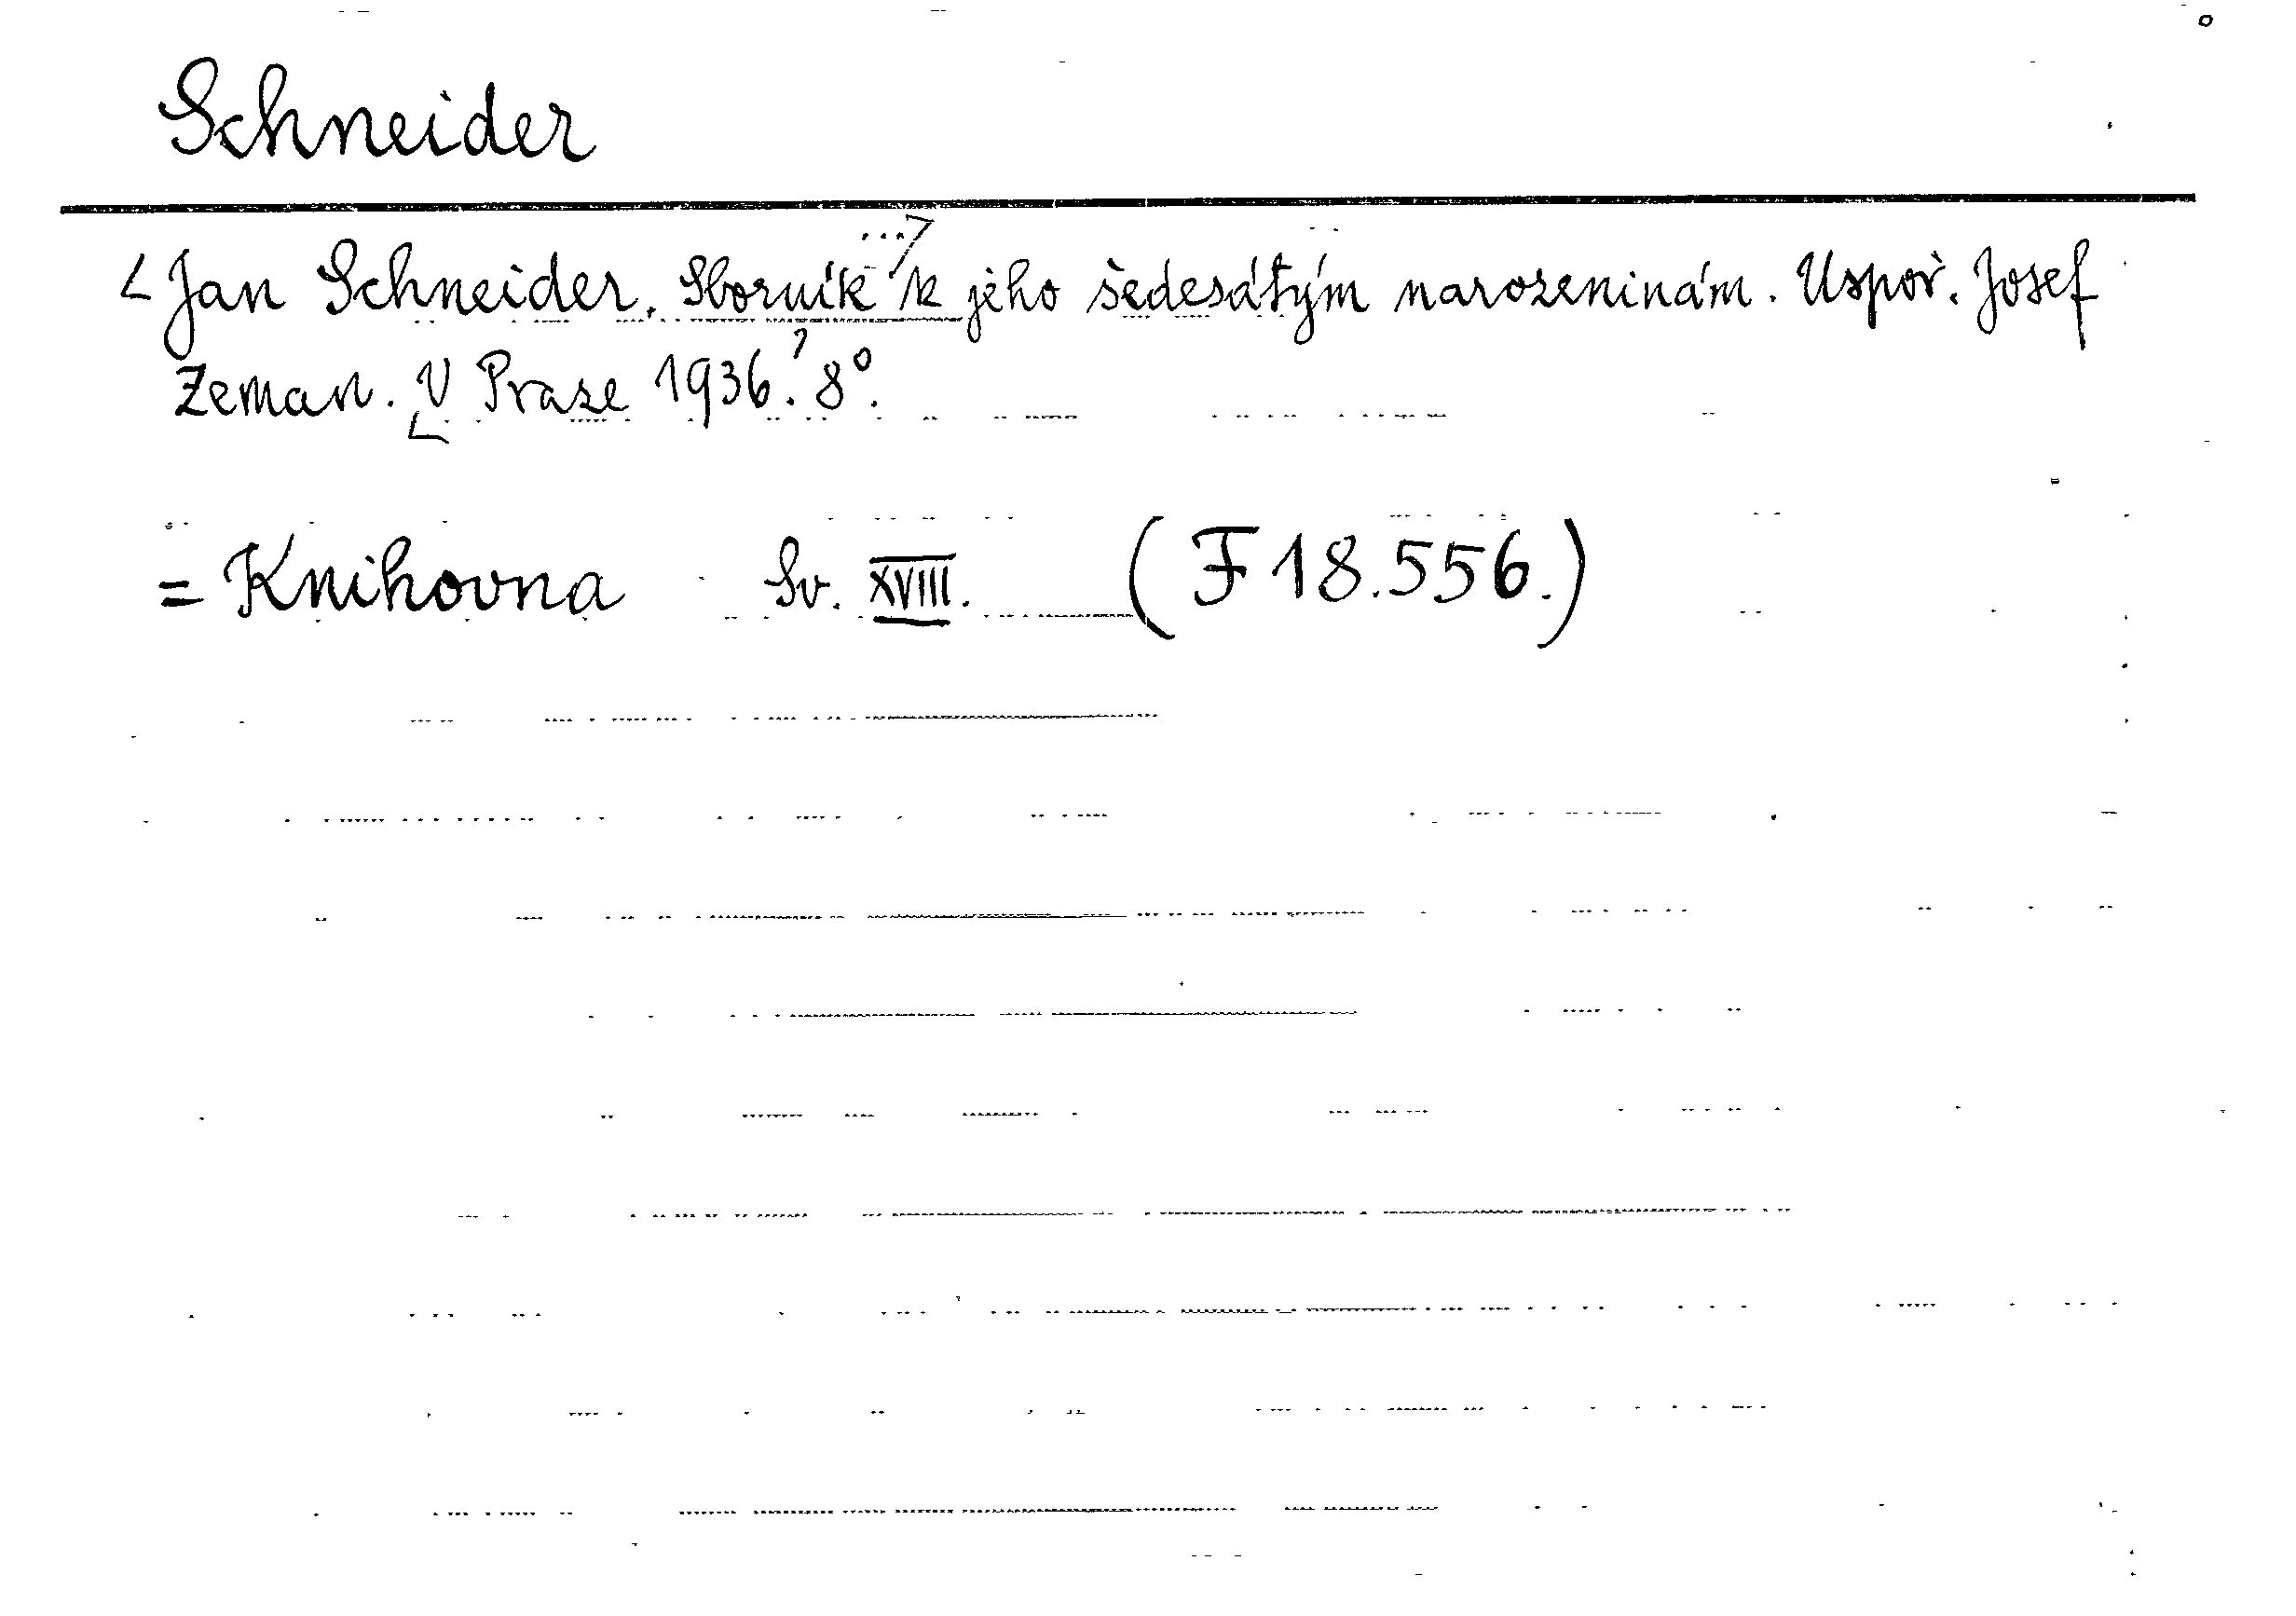 Schneider
<Jan Schneider. Sborník ...> k jeho šedesátým narozeninám. Uspoř. Josef
Zeman. <V Praze 1936.> 8°.
= Knihovna Sv. XVIII. (F 18.556.)